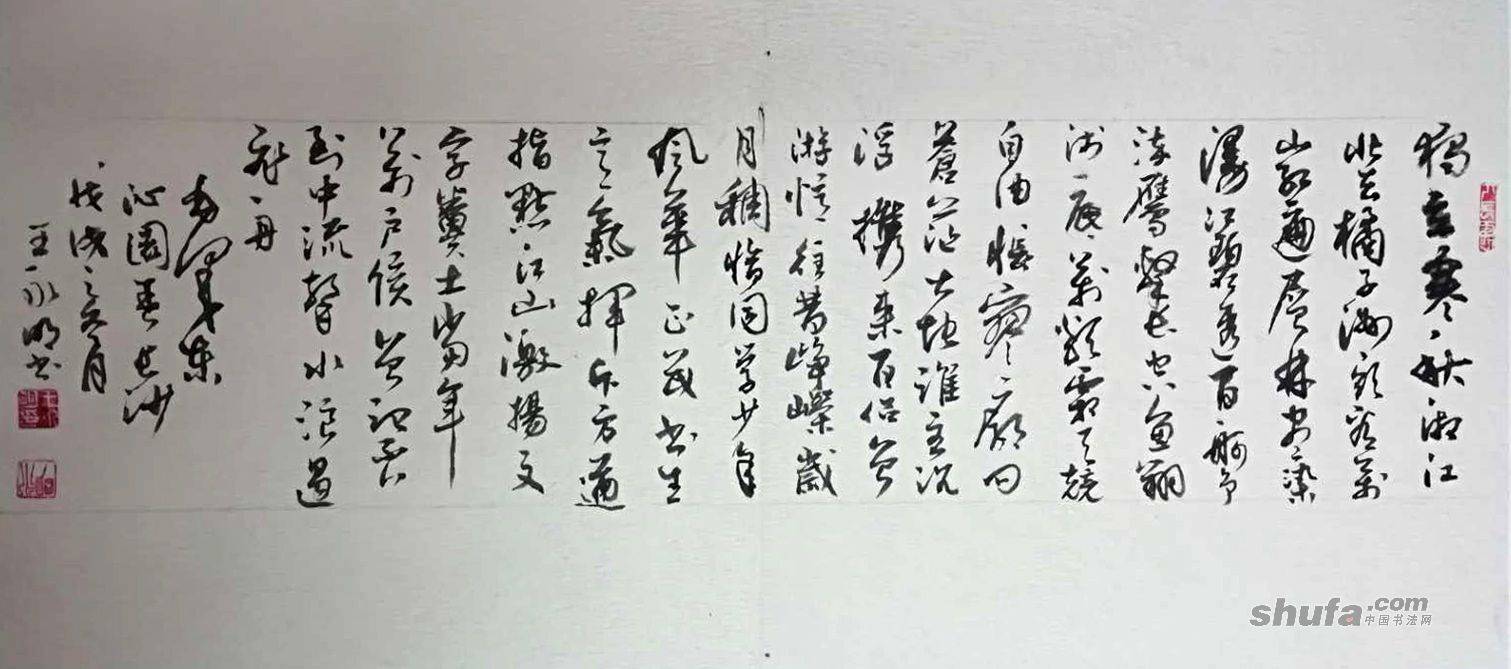 獨立寒秋湘江
北去橘子洲頭看萬
山紅遍層林盡染
漫江碧透百舸争
流鷹擊長空魚翔
淺底萬類霜天競
自由悵寥廓問
蒼茫大地誰主沉
浮攜來百侣曾
游憶往昔崢嶸歲
月稠恰同學少年
風華正茂書生
意氣揮斥方遒
指點江山激揚文
字糞土當年
萬户侯曾記否
到中流擊水浪遏
飛舟
毛澤東
沁園春長沙
戊戌之冬月
王永明書
shufa.com
中国书法网